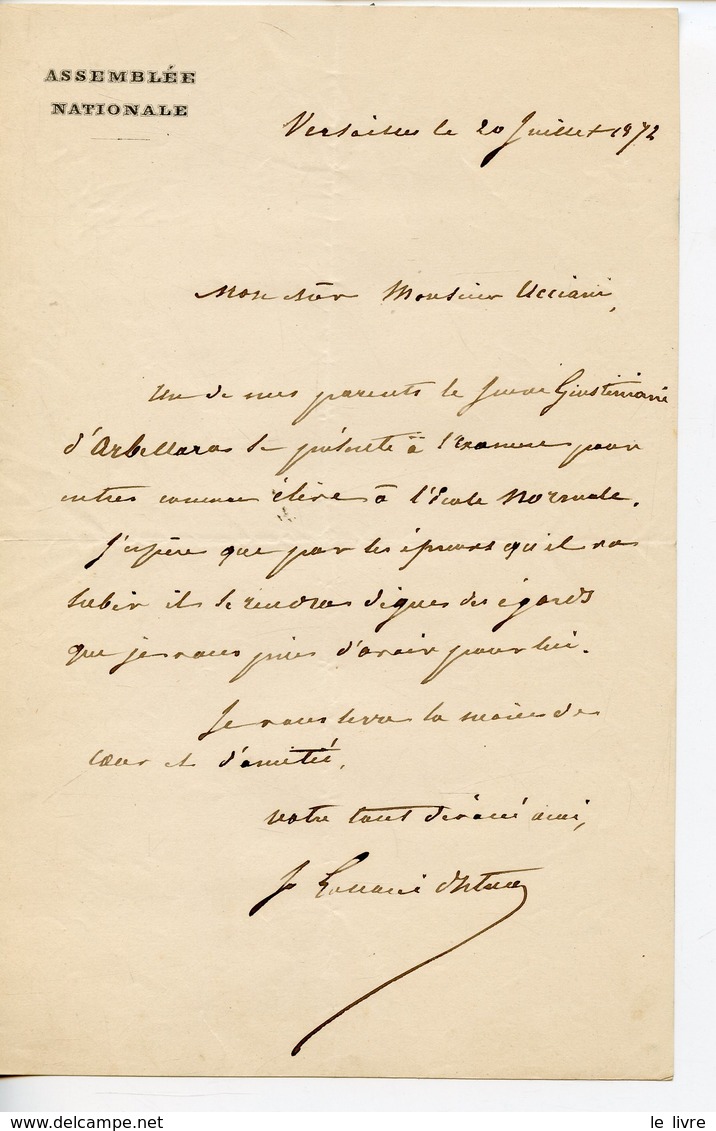 ASSEMBLÉE
NATIONALE
Versailles le 20 Juillet 1872
Mon cher Monsieur Ucciani,
Un de mes parents le jeune Giustiniani
d'Arbellara se présente à l'examen pour
entrer comme élève à l'école Normale.
J'espère que par les épreuves qu'il va
subir il se rendra digne des égards
que je vous prie d'avoir pour lui.
Je vous serre la main de
cœur et d'amitié.
votre tout dévoué ami,
d'Istria
le livre
www.delcampe.net